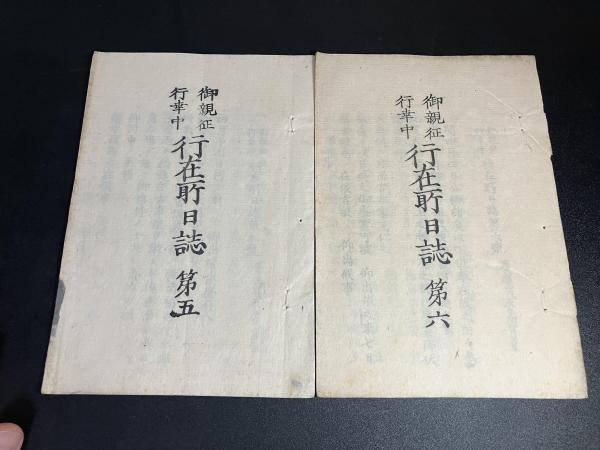 御親征
行幸中
行在所日誌 第六
御親征
行幸中
行在所日誌 第五